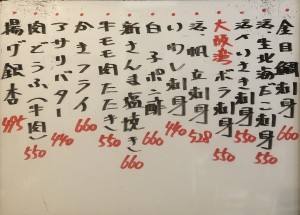 金目鯛刺身 660
活生北海だこ刺身 550
活べいさき刺身 550
大阪湾ボラ刺身 550
活帆立刺身 528
いわし刺身 440
白子ポン酢 660
新さんま塩焼き 660
牛モモ肉たたき 550
かきフライ 660
アサリバター 440
肉どうふ(牛肉) 550
揚げ銀杏 495